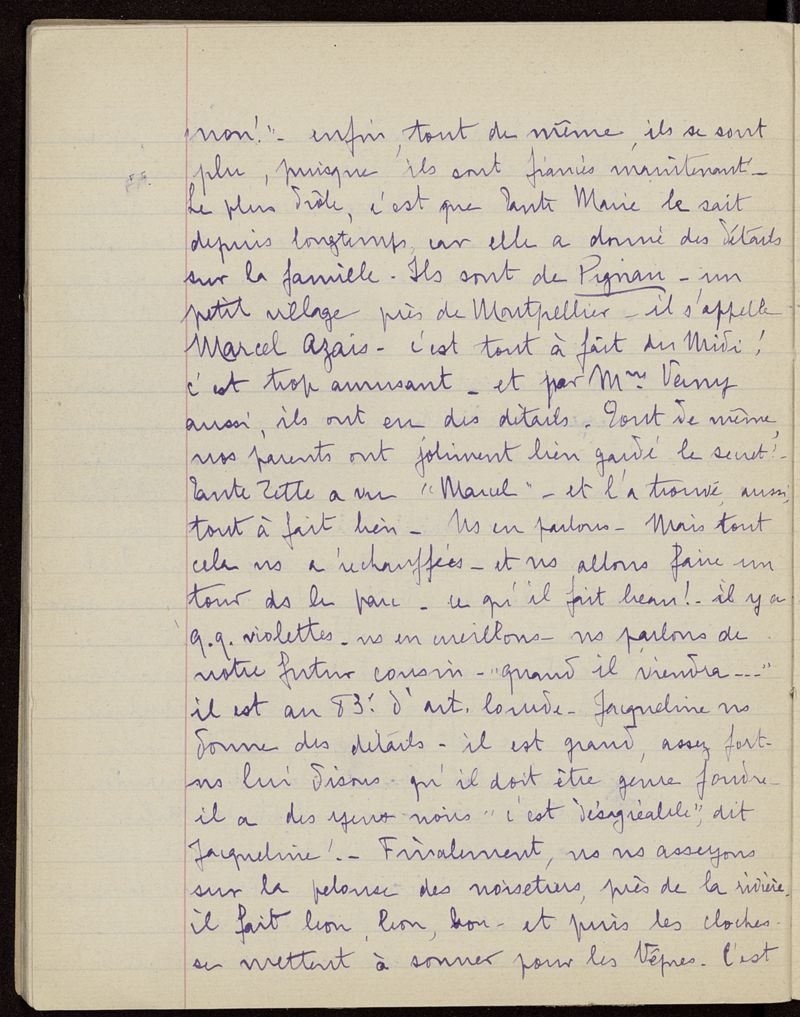 non!" - enfin, tout de même, ils se sont
plu, puisque ils sont fiancés maintenant -
Le plus drôle, c'est que Tante Marie le sait
depuis longtemps, car elle a donné des détails
sur la famille - Ils sont de Pignan - un
petit village près de Montpellier - il s'appelle
Marcel Azaïs - c'est tout à fait du Midi !
c'est trop amusant - et par Mme Verny
aussi, ils ont eu des détails - Tout de même,
nos parents ont joliment bien gardé le secret ! -
Tante Zette a vu "Marcel" - et l'a trouvé, aussi,
tout à fait bien - Ns en parlons - Mais tout
cela ns a réchauffées - et ns allons faire un
tour ds le parc - ce qu'il fait beau ! - il y a
q.q. violettes - ns en cueillons - ns parlons de
notre futur cousin - "quand il viendra - - -"
il est au 83e d'art. lourde - Jacqueline ns
donne des détails - il est grand, assez fort -
ns lui disons qu'il doit être genre foudre -
il a des yeux noirs "c'est désagréable", dit
Jacqueline ! - Finalement, ns ns asseyons
sur la pelouse des noisetiers, près de la rivière.
il fait bon, bon, bon - et puis les cloches
se mettent à sonner pour les Vêpres. C'est